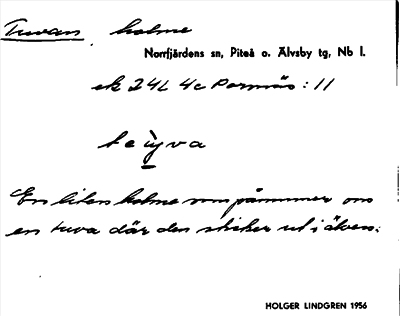 Tuvan holme
Norrfjärdens sn, Piteå o. Älvsby tg, Nb l.
ek 24L 4c Porsnäs : 11
te ùyva
En liten holme som påminner om
en tuva där den sticker ut i älven.
HOLGER LINDGREN 1956